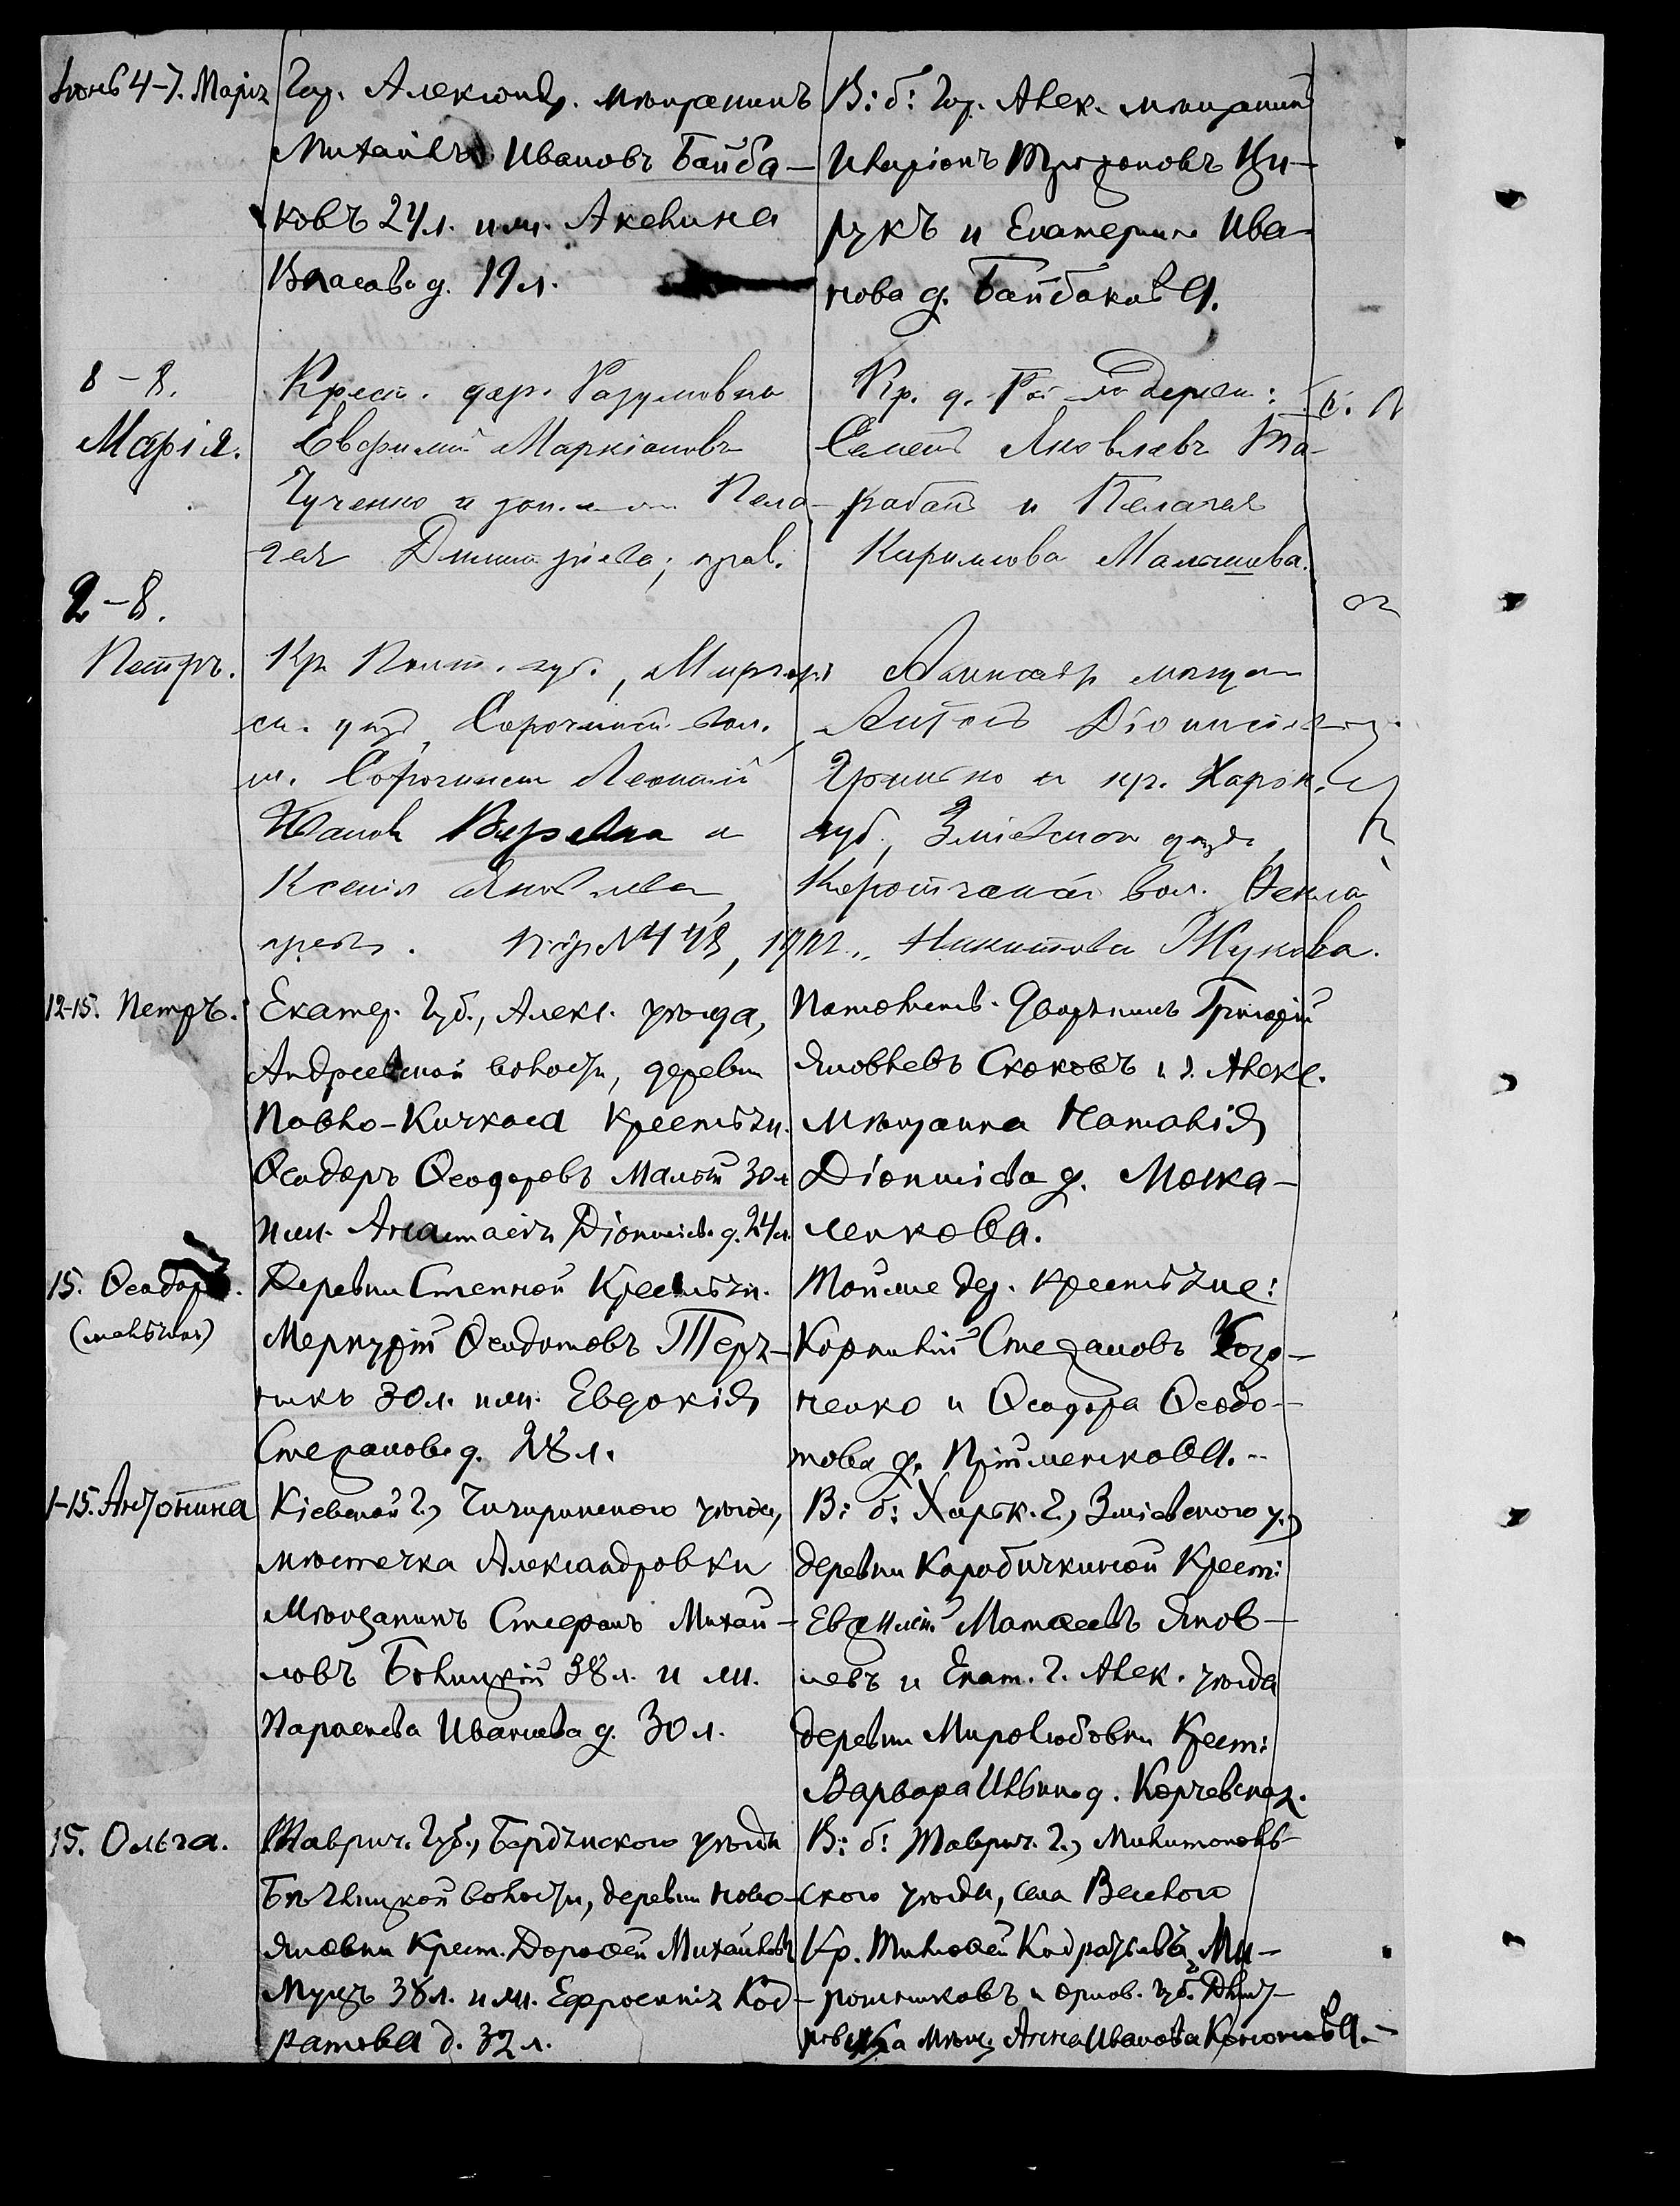 Іюнь 4-7. Марія
Гор. Александр. мѣщанинъ
Михаилъ Ивановъ Байба-
ковъ 24 л. и ж. Акелина
Власова д. 19 л.
В: б: Гор. Алек. мѣщанинъ
Иларіонъ Трифоновъ Ци-
рукъ и Екатерина Ива-
нова д. Байбакова.
8-8.
Марія.
Крест. дер. Разумовки
Евфимій Маркіановъ
Гученко и зак. ж. Пела-
гея Димитріева; прав.
Кр. д.
Семенъ Яковлевъ Та-
рабанъ и Пелагея
Кириллова Малышева.
2-8.
Петръ.
Кр. Полт. губ., Миргор.
ск. уѣзд., Сорочинск. вол.
м. Сорочинец Леонтій
Іванов и
Ксенія Яковлева,
прав.
Александр мѣщан
Антонъ Діонисіев
и кр. Харьк.
губ., Зміевскаго уѣзда,
Коротчанской вол. Ѳекла
Никитова Жукова.
12-15. Петръ.
Екатер. Губ., Алекс. уѣзда,
Андреевской волости, деревни
Павло-Кичкаса Крестьян.
Ѳеодоръ Ѳеодоровъ Малый 30 л.
и ж. Анастасія Діонисіева д. 24 л.
Потомств. дворянинъ Григорій
Яковлевъ Скоковъ и г. Алекс.
мѣщанка Наталія
Діонисіева д. Моска-
ленкова.
15. Ѳеодоръ.
(мальчикъ)
Деревни Степной Крестьян.
Меркурій Ѳеодотовъ Теря-
никъ 30 л. и ж. Евдокія
Стефанова д. 28 л.
Тойже дер. крестьяне:
Корнилій Стефановъ Козо-
ченко и Ѳеодора Ѳеодо-
това д. Прійменкова.
1-15. Антонина
Кіевской г., Чигиринскаго уѣзда,
мѣстечка Александровки
Мѣщанинъ Стефанъ Михай-
ловъ Бѣлицкій 38 л. и ж.
Параскева Иванова д. 30 л.
В: б: Харьк. г., Зміевского у.,
деревни Коробичкиной Крест:
Евфимій Матѳеевъ Яков-
левъ и Екат. г. Алек. уѣзда
деревни Миролюбовки Крест:
Варвара Ильина д. Корчевская.
15. Ольга.
Таврич. Губ., Бердянского уѣзда
волости, деревни Ново-
Яковки Крест. Дороѳей Михайловъ
Муцъ 38 л. и ж. Ефросинія Код-
ратова д. 32 л.
В: б: Таврич. г., Мелитополь-
ского уѣзда, села Веселого
Кр. Тимоѳей Кодратьевъ Ми-
рошниковъ и Орлов. губ. Дмит-
ровска мѣщ. Анна Иванова